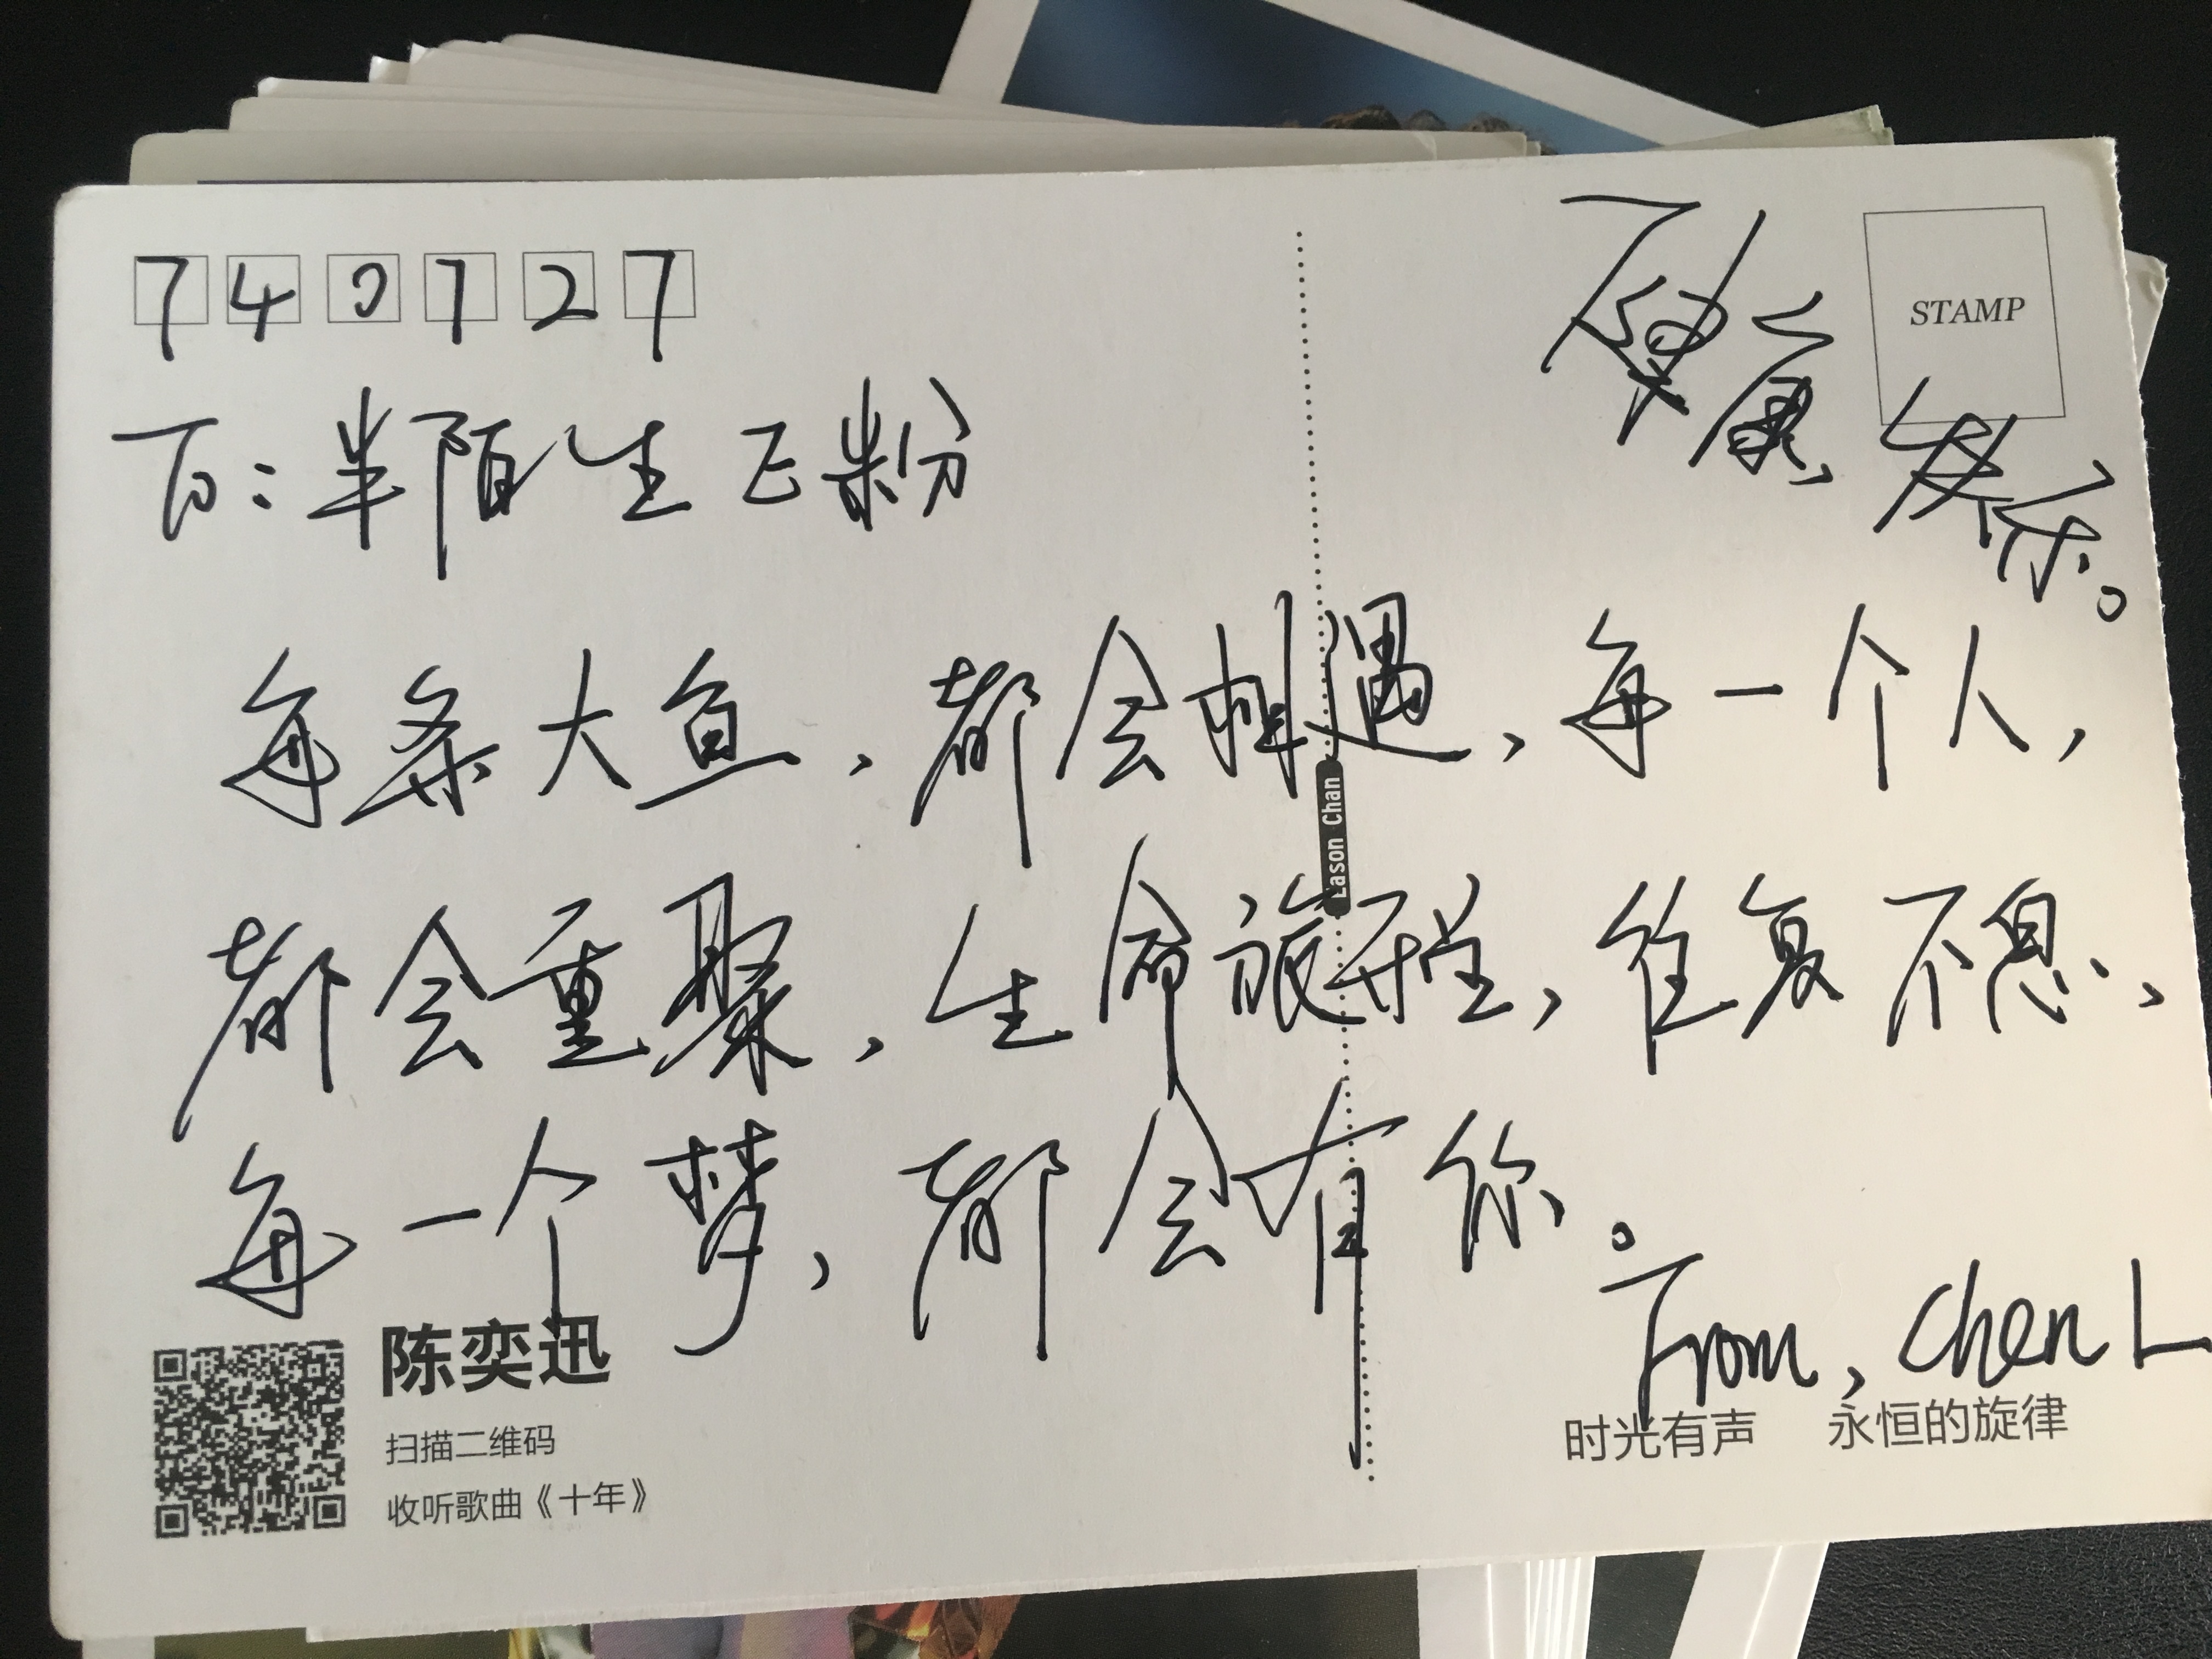 740727
STAMP
健康,快乐。
致:半陌生E粉
每条大鱼,都会相遇,每一个人,
都会重聚,生命旅程,往复不息,
每一个梦,都会有你。
From, Chen L
Eason Chan
陈奕迅
扫描二维码
收听歌曲《十年》
时光有声 永恒的旋律